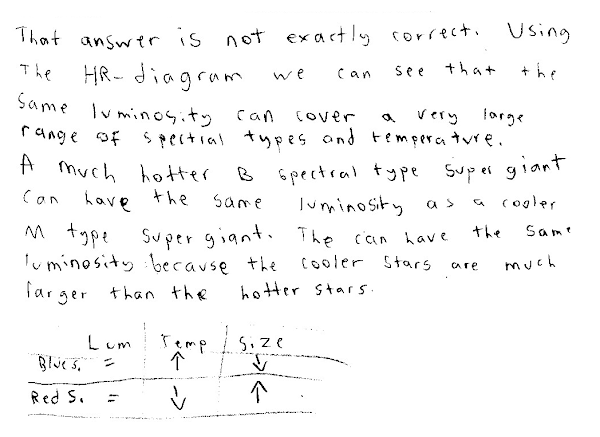 That answer is not exactly correct. Using
The HR-diagram we can see that the
Same luminosity can cover a very large
range of spectral types and temperature.
A much hotter B spectral type Super giant
Can have the same luminosity as a cooler
M type Super giant. The can have the same
luminosity because the cooler stars are much
larger than the hotter stars.
Lum Temp Size
Blue S. = ↑ ↓
Red S. = ↓ ↑